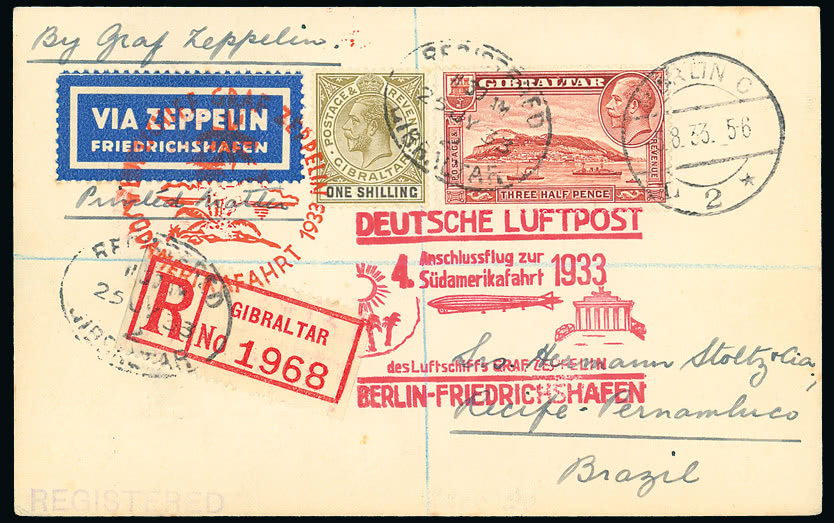 By Graf Zeppelin.
VIA ZEPPELIN
FRIEDRICHSHAFEN
Printed Matter
POSTAGE & REVENUE
GIBRALTAR
ONE SHILLING
GIBRALTAR
POSTAGE & REVENUE
THREE HALF PENCE
REGISTERED
GIBRALTAR
BERLIN C
8.33. 5-6
2 *
GRAF ZEPPELIN
FAHRT 1933
REGISTERED
GIBRALTAR
R
GIBRALTAR
No 1968
DEUTSCHE LUFTPOST
4. Anschlussflug zur
Südamerikafahrt 1933
des Luftschiffs GRAF ZEPPELIN
BERLIN-FRIEDRICHSHAFEN
Hermann Stoltz & Cia,
Recife-Pernambuco
Brazil
REGISTERED